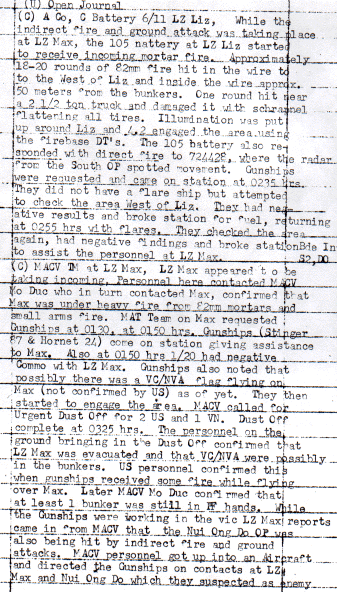 (U) Open Journal
(C) A Co, C Battery 6/11 LZ Liz, While the
indirect fire and ground attack was taking place
at LZ Max, the 105 nattery at LZ Liz started
to receive incoming mortar fire. Approximately
18-20 rounds of 82mm fire hit in the wire to
to the West of Liz and inside the wire approx.
50 meters from the bunkers. One round hit near
a 2 1/2 ton truck and damaged it with schrapnel
flattering all tires. Illumination was put
up around Liz and 4.2 engaged the area using
the firebase DT's. The 105 battery also re-
sponded with direct fire to 724428, where the radar
from the South OP spotted movement. Gunships
were requested and came on station at 0235 hrs.
They did not have a flare ship but attempted
to check the area West of Liz. They had neg-
ative results and broke station for fuel, returning
at 0255 hrs with flares. They checked the area
again, had negative findings and broke station Bde In
to assist the personnel at LZ Max. S2,DO
(C) MACV TM at LZ Max, LZ Max appeared to be
taking incoming. Personnel here contacted MACV
Mo Duc who in turn contacted Max, confirmed that
Max was under heavy fire from 82mm mortars and
small arms fire. MAT Team on Max requested
Gunships at 0130. at 0150 hrs. Gunships (Stinger
87 & Hornet 24) come on station giving assistance
to Max. Also at 0150 hrs 1/20 had negative
Commo with LZ Max. Gunships also noted that
possibly there was a VC/NVA flag flying on
Max (not confirmed by US) as of yet. They then
started to engage the area. MACV called for
Urgent Dust Off for 2 US and 1 VN. Dust Off
complete at 0325 hrs. The personnel on the
ground bringing in the Dust Off confirmed that
LZ Max was evacuated and that VC/NVA were possibly
in the bunkers. US personnel confirmed this
when gunships received some fire while flying
over Max. Later MACV Mo Duc confirmed that
at least 1 bunker was still in PF hands. While
the Gunships were working in the vic LZ Max reports
came in from MACV that the Nui Ong Do OP was
also being hit by indirect fire and ground
attacks. MACV personnel got up into an Aircraft
and directed the Gunships on contacts at LZ
Max and Nui Ong Do which they suspected as enemy